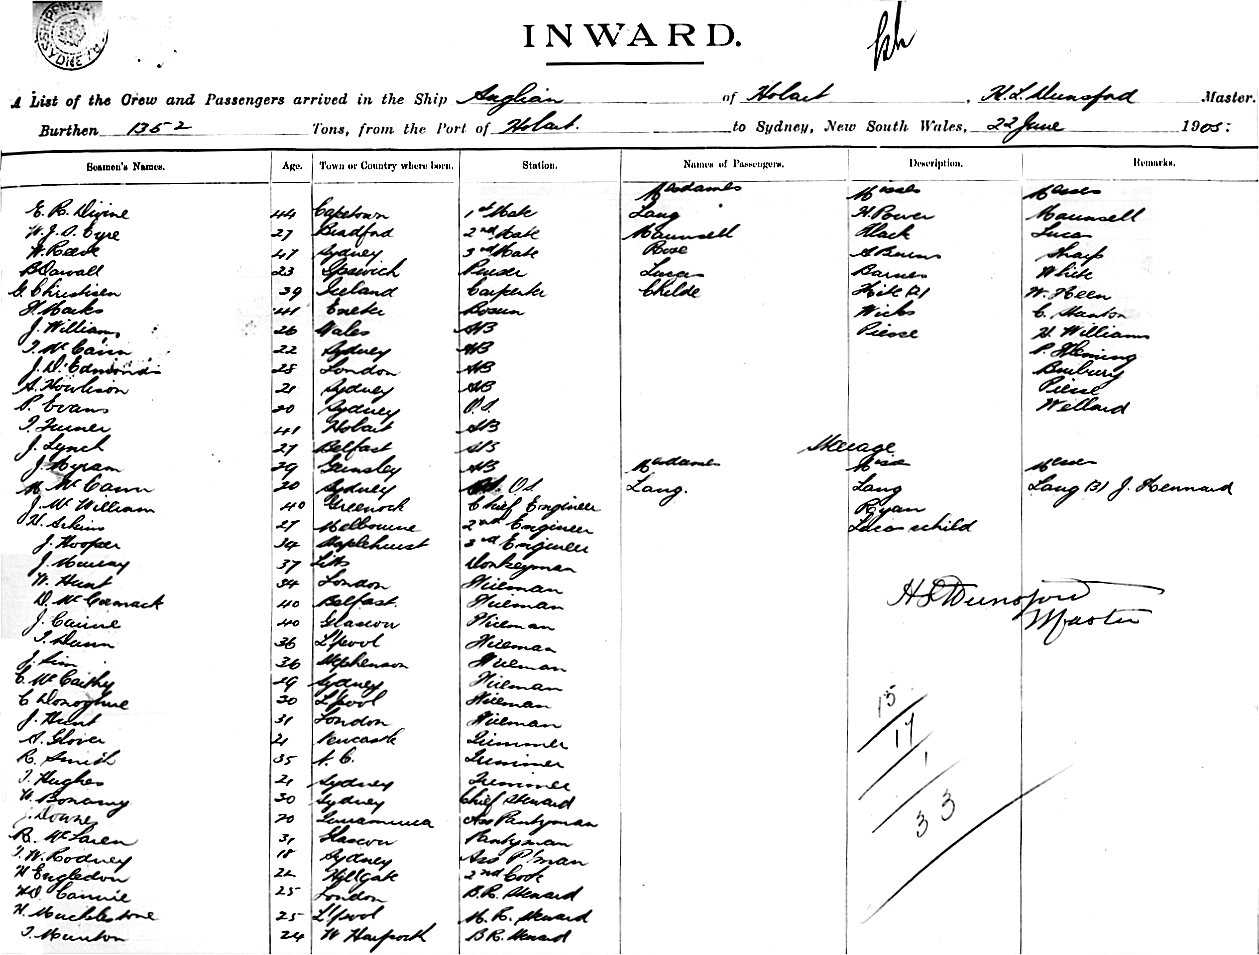 SHIPPING
SYDNEY
INWARD.
A List of the Crew and Passengers arrived in the Ship Anglian of Hobart, H. L. Dunsford Master.
Burthen 1352 Tons, from the Port of Hobart. to Sydney, New South Wales, 22 June 1905:
Seamen's Names. Age. Town or Country where born. Station. Names of Passengers. Description. Remarks.
Mesdames Misses Messrs
E. R. Divine 44 Capetown 1st Mate Lang H Power Maunsell
W. J. S. Eyre 27 Bradford 2nd Mate Maunsell Black Lucas
W. Reeve 47 Sydney 3rd Mate Rose A Burns Sharp
B Dowall 23 Ipswich Purser Lucas Barnes White
G. Christisen 39 Iceland Carpenter Childe W. Keen
H Marks 41 Exeter Bosun Wicks C. Stanton
J. Williams 26 Wales AB Piesse H Williams
T. Mc Cann 22 Sydney AB P. Fleming
J. D'Edmonds 28 London AB Burbury
A. Howlison 21 Sydney AB Piesse
P. Evans 20 Sydney O.S. Wellard
T. Turner 41 Hobart AB
J. Lynch 27 Belfast AB Steerage
J. Hyram 29 Grimsley AB Mesdames Misses Messrs
Mc Cann 20 Sydney OS Lang. Lang Lang (3) J. Kennard
J. Mc William 40 Greenock Chief Engineer Ryan
H. Askins 27 Melbourne 2nd Engineer Lucas child
J. Hooper 34 Maplehurst 3rd Engineer
J. Murray 37 Donkeyman
W. Hunt 34 London Fireman
D. Mc Cormack 40 Belfast. Fireman
J. Currie 40 Glascow Fireman
T. Dunn 36 L'pool Fireman
J. Sim 36 Stephenson Fireman
C. Mc Caithy 29 Sydney Fireman
C Donoghue 30 L'pool Fireman
J. Hunt 31 London Fireman
A. Glover 21 Newcastle Trimmer
R. Smith 35 N. C. Trimmer
T. Hughes 21 Sydney Trimmer
W. Bonamy 30 Sydney Chief Steward
J. Downes 20 Ass Pantryman
R. Mc Laren 31 Glascow Pantryman
T. W. Rodney 18 Sydney Ass P'man
H Engledon 22 Hellgate 2nd Cook
25 London B. R. Steward
H. Mucklestone 25 L'pool M. R. Steward
T. Munton 24 W Harptock B R. Steward
H L Dunsford
Master
15
17
1
33